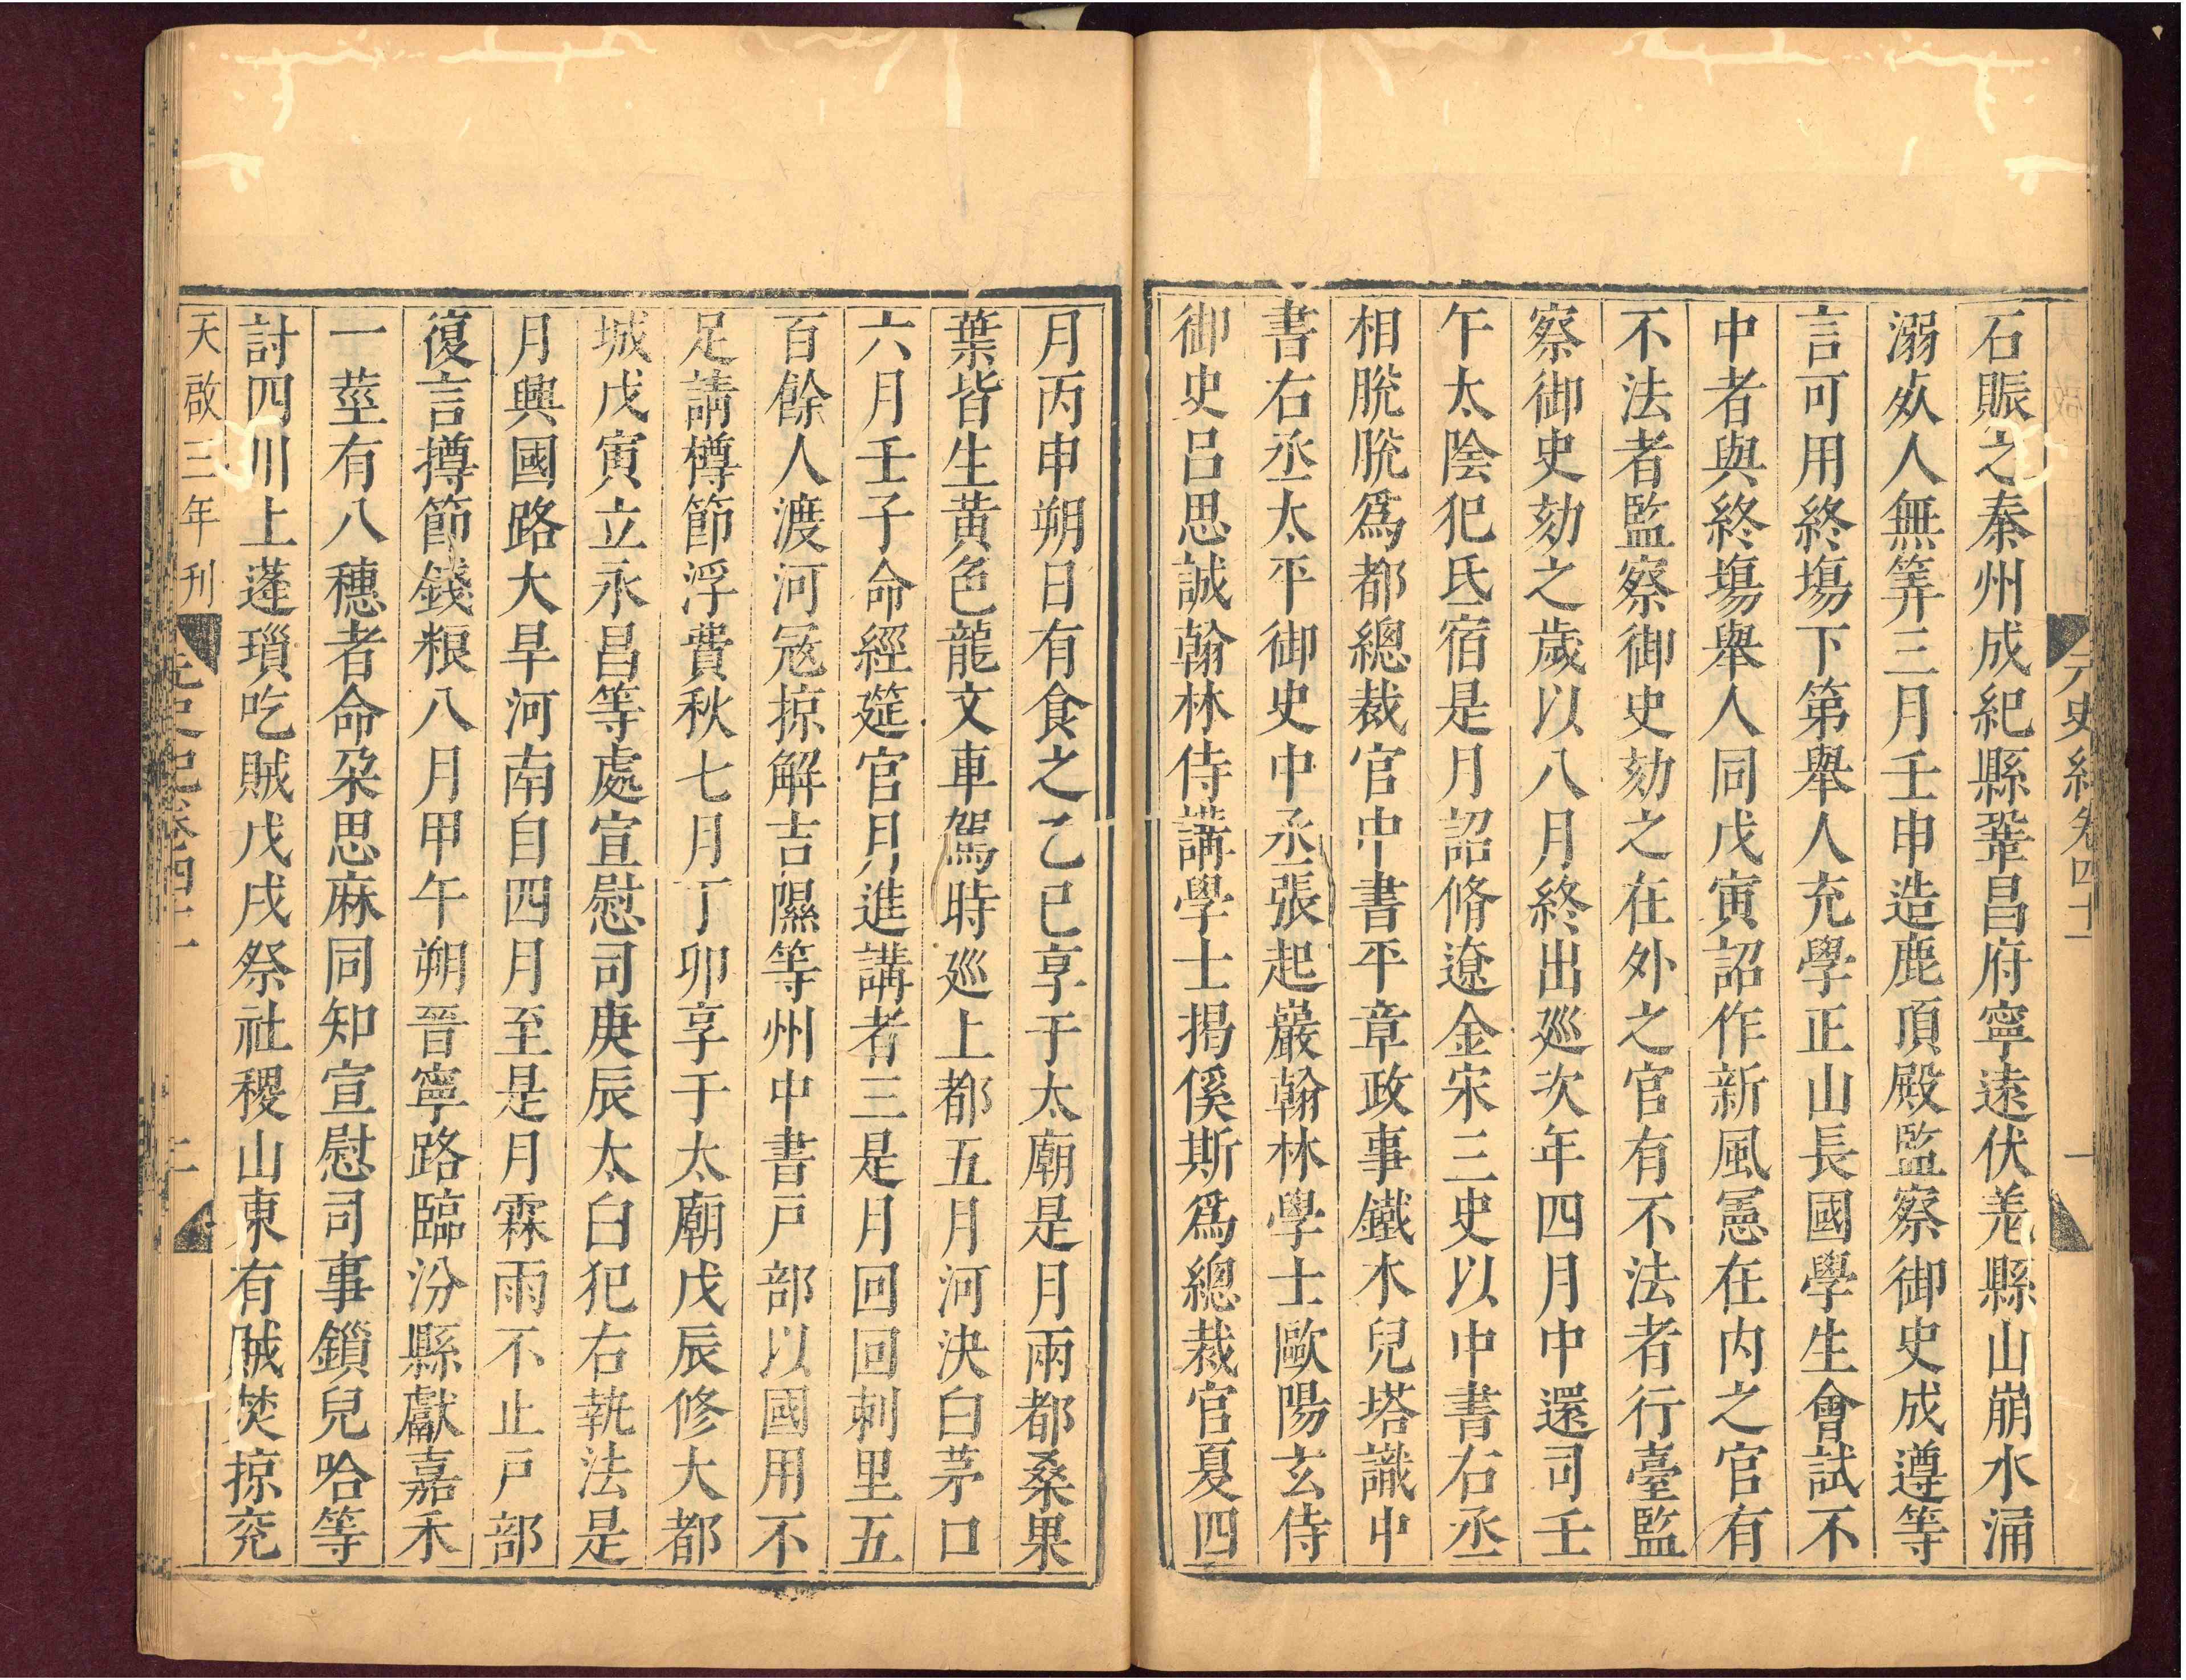 元史紀卷四十一
一
石賑之秦州成紀縣鞏昌府寧遠伏羗縣山崩水涌
溺死人無筭三月壬申造鹿頂殿監察御史成遵等
言可用終塲下第舉人充學正山長國學生會試不
中者與終塲舉人同戊寅詔作新風憲在内之官有
不法者監察御史劾之在外之官有不法者行臺監
察御史劾之歲以八月終出廵次年四月中還司壬
午太陰犯氐宿是月詔脩遼金宋三史以中書右丞
相脫脫爲都總裁官中書平章政事鐵木兒塔識中
書右丞太平御史中丞張起巖翰林學士歐陽玄侍
御史呂思誠翰林侍講學士揭傒斯爲總裁官夏四
月丙申朔日有食之乙巳享于太廟是月兩都桑果
葉皆生黃色龍文車駕時廵上都五月河決白茅口
六月壬子命經筵官月進講者三是月回回剌里五
百餘人渡河寇掠解吉隰等州中書戶部以國用不
足請樽節浮費秋七月丁卯享于太廟戊辰修大都
城戊寅立永昌等處宣慰司庚辰太白犯右執法是
月興國路大旱河南自四月至是月霖雨不止戶部
復言撙節錢粮八月甲午朔晉寧路臨汾縣獻嘉禾
一莖有八穗者命朶思麻同知宣慰司事鎻兒哈等
討四川上蓬瑣吃賊戊戌祭社稷山東有賊焚掠兖
天啟三年刊
元史紀卷四十一
二